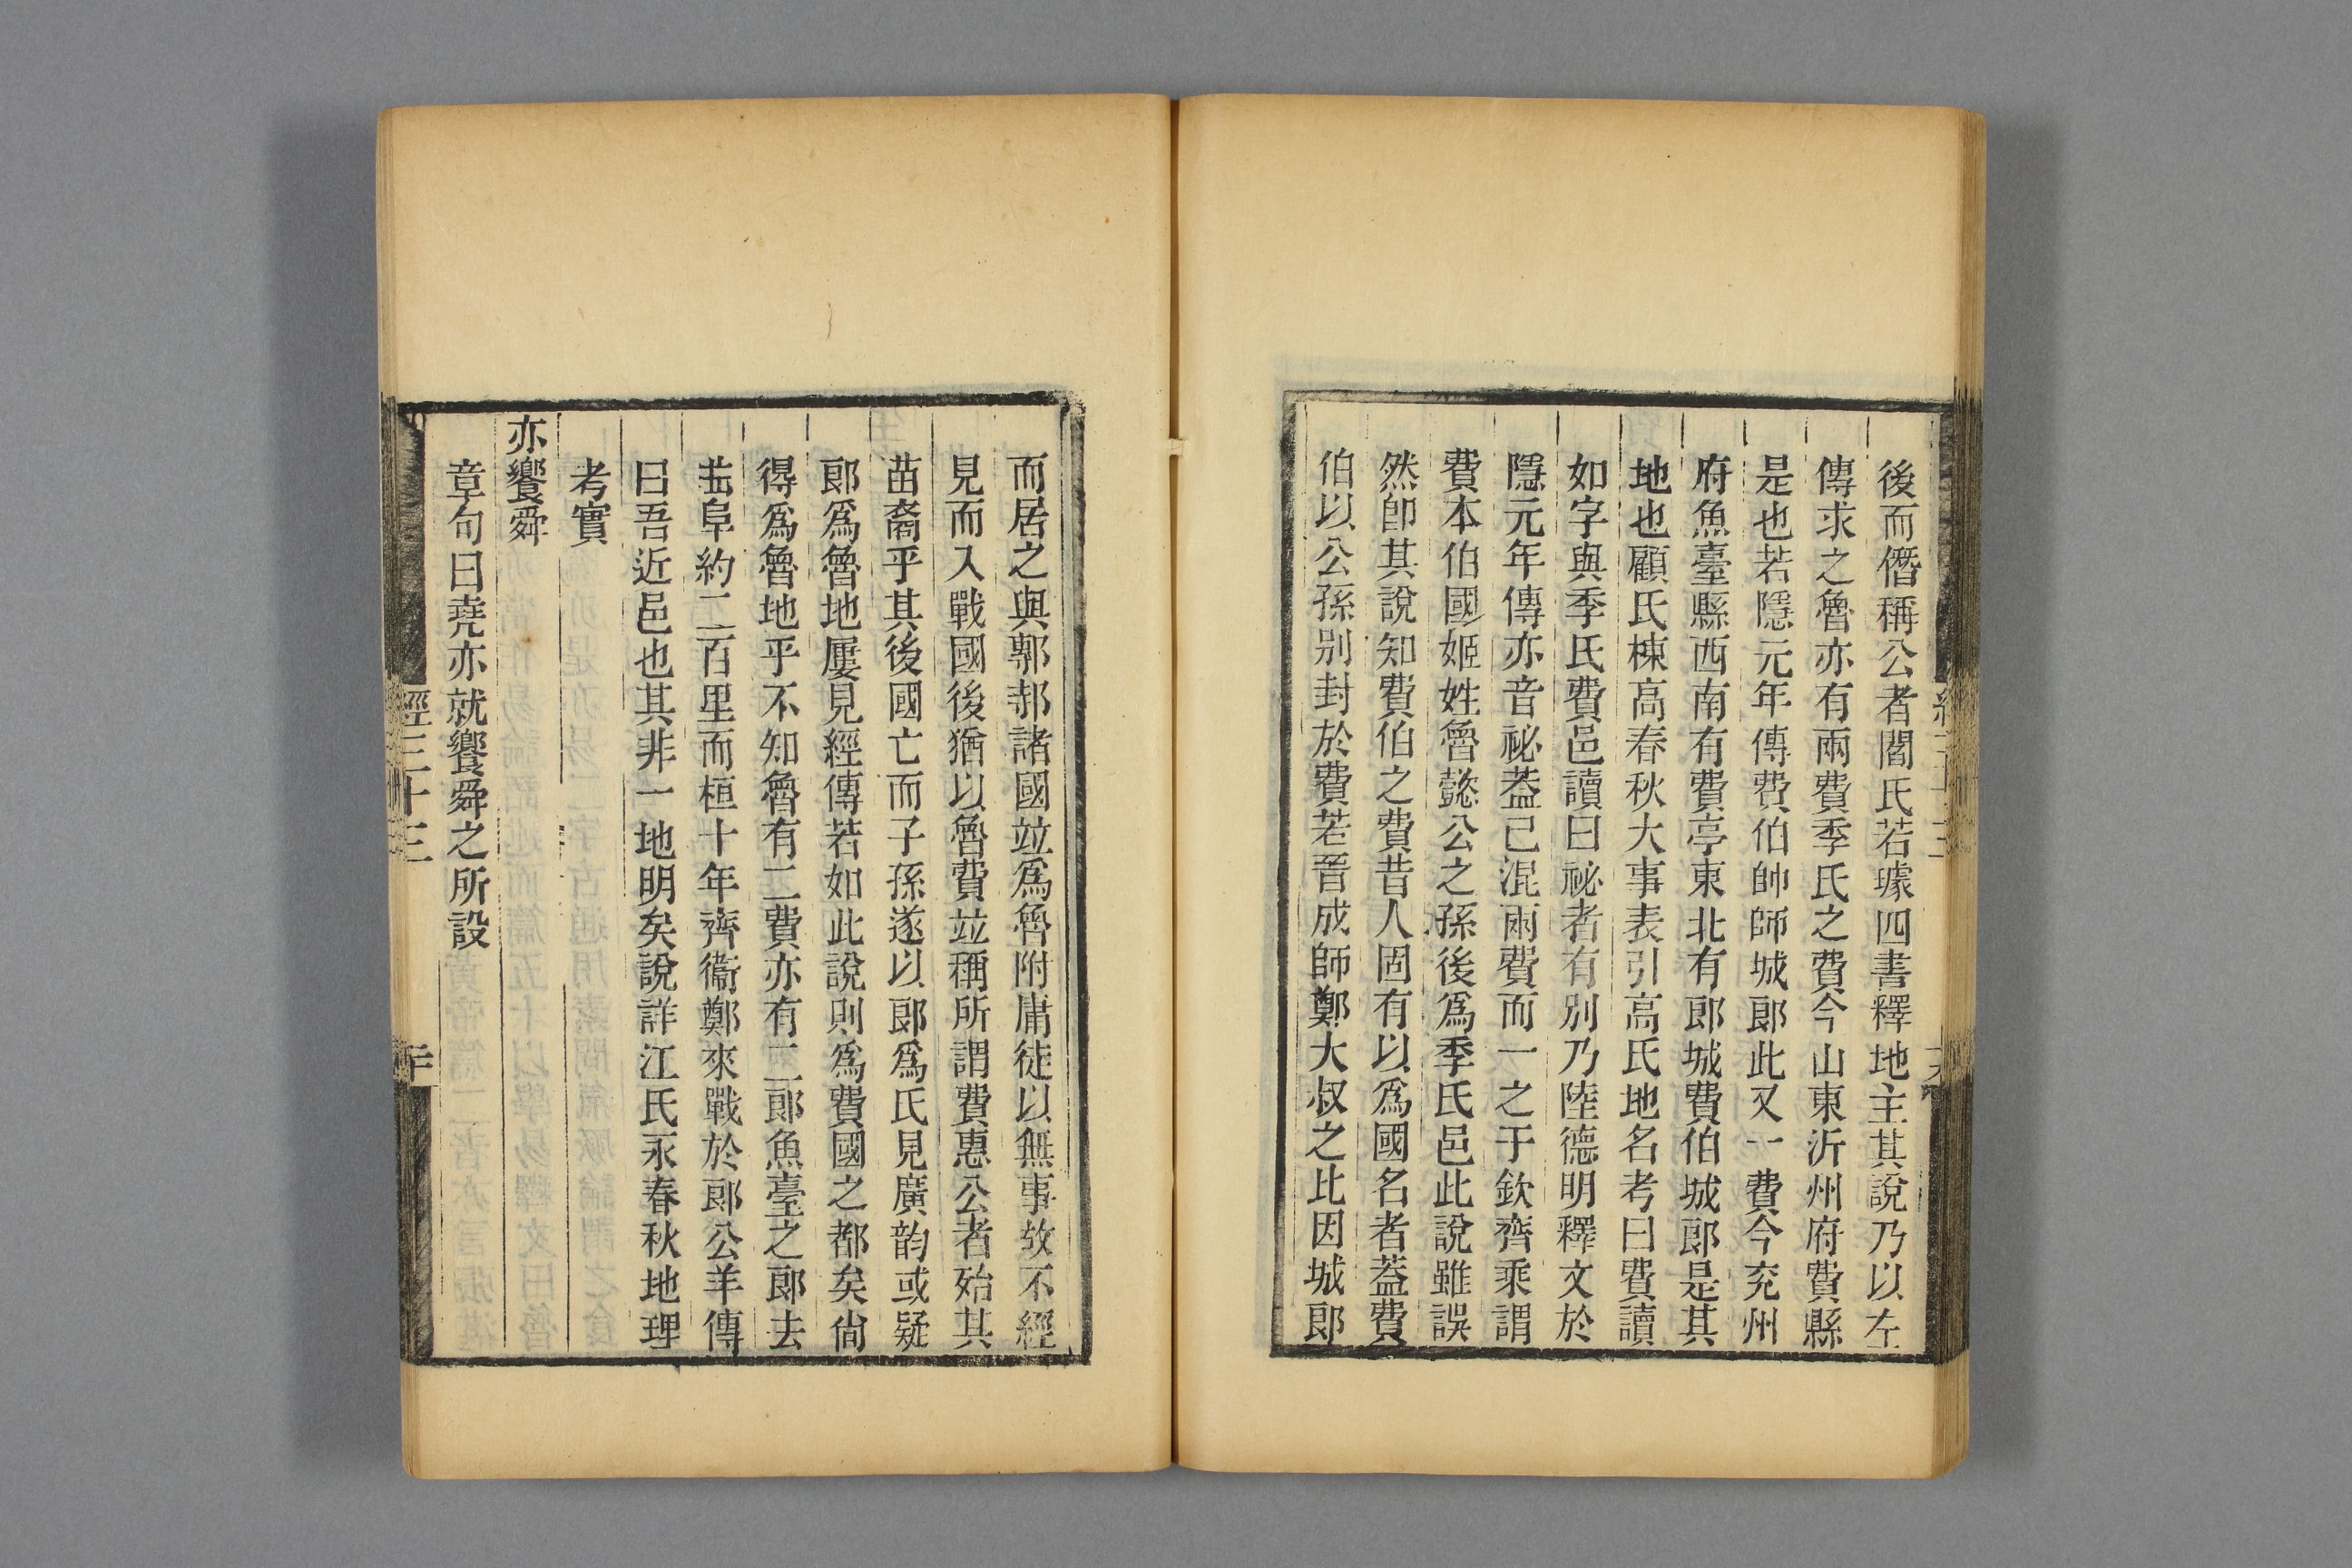 後而僭稱公者閻氏若璩四書釋地主其說乃以左
傳求之魯亦有兩費季氏之費今山東沂州府費縣
是也若隱元年傳費伯帥師城郎此又一費今兖州
府魚臺縣西南有費亭東北有郎城費伯城郎是其
地也顧氏棟高春秋大事表引高氏地名考曰費讀
如字與季氏費邑讀曰祕者有別乃陸德明釋文於
隱元年傳亦音祕葢已混兩費而一之于欽齊乘謂
費本伯國姬姓魯懿公之孫後爲季氏邑此說雖誤
然卽其說知費伯之費昔人固有以爲國名者葢費
伯以公孫別封於費若晉成師鄭大叔之比因城郎
而居之與鄟邿諸國竝爲魯附庸徒以無事故不經
見而入戰國後猶以魯費竝稱所謂費惠公者殆其
苗裔乎其後國亡而子孫遂以郎爲氏見廣韵或疑
郎爲魯地屢見經傳若如此說則爲費國之都矣尙
得爲魯地乎不知魯有二費亦有二郎魚臺之郎去
曲阜約二百里而桓十年齊衞鄭來戰於郎公羊傳
曰吾近邑也其非一地明矣說詳江氏永春秋地理
考實
亦饗舜
章句曰堯亦就饗舜之所設
經三十三
二十